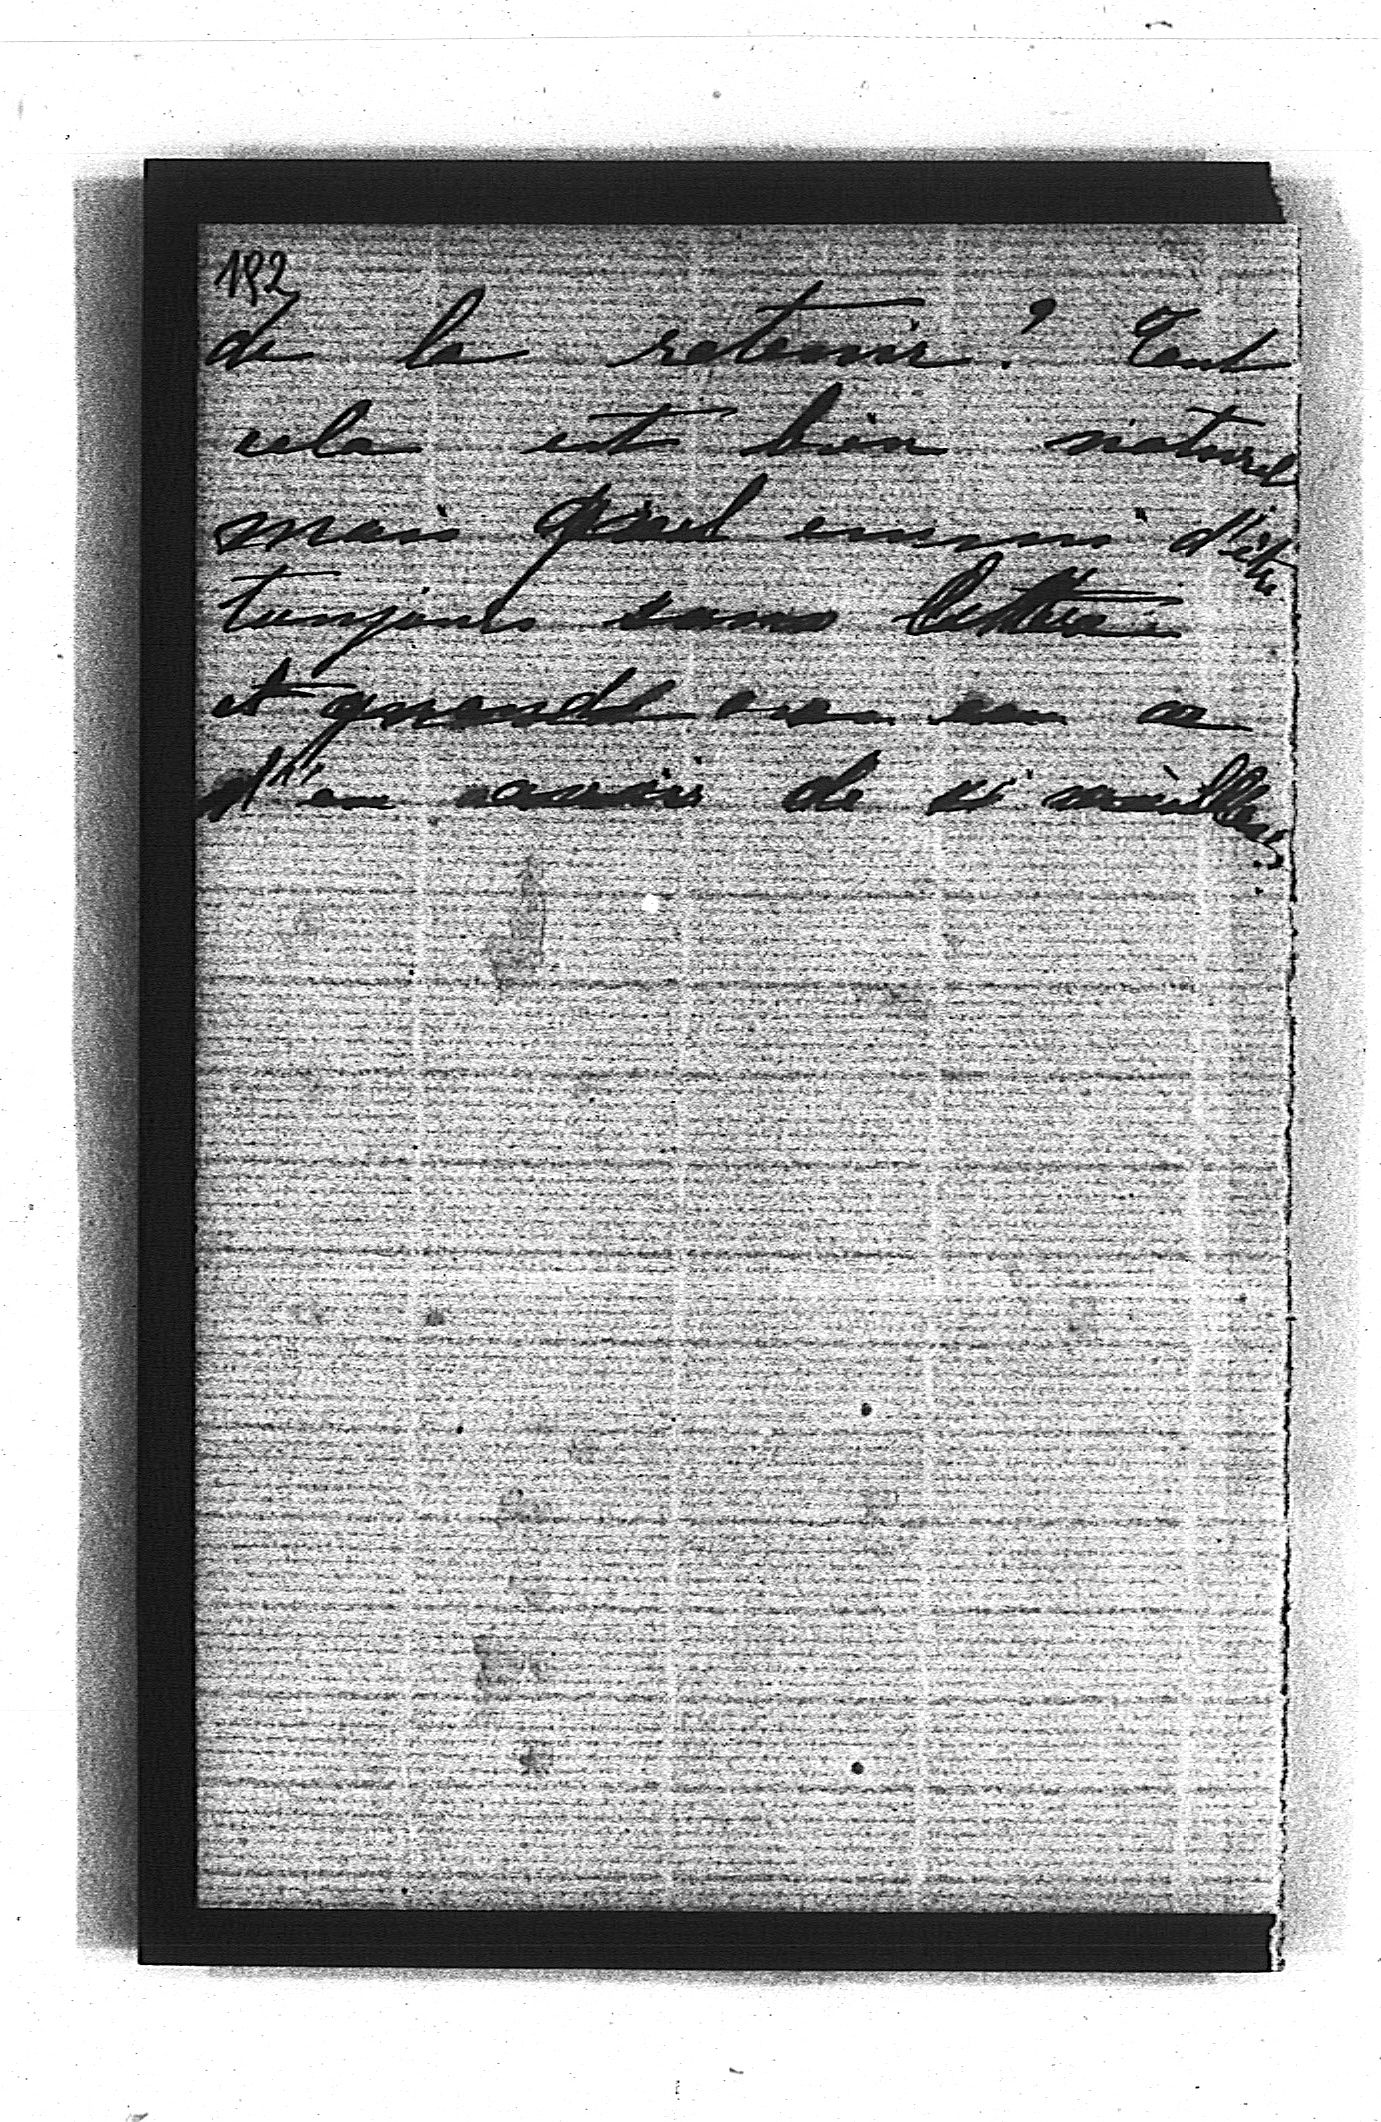 192
de la retenir? Tout
cela est bien naturel
mais quel ennui d'être
toujours sans lettres
et quand on en a
d'en avoir de si vieilles.